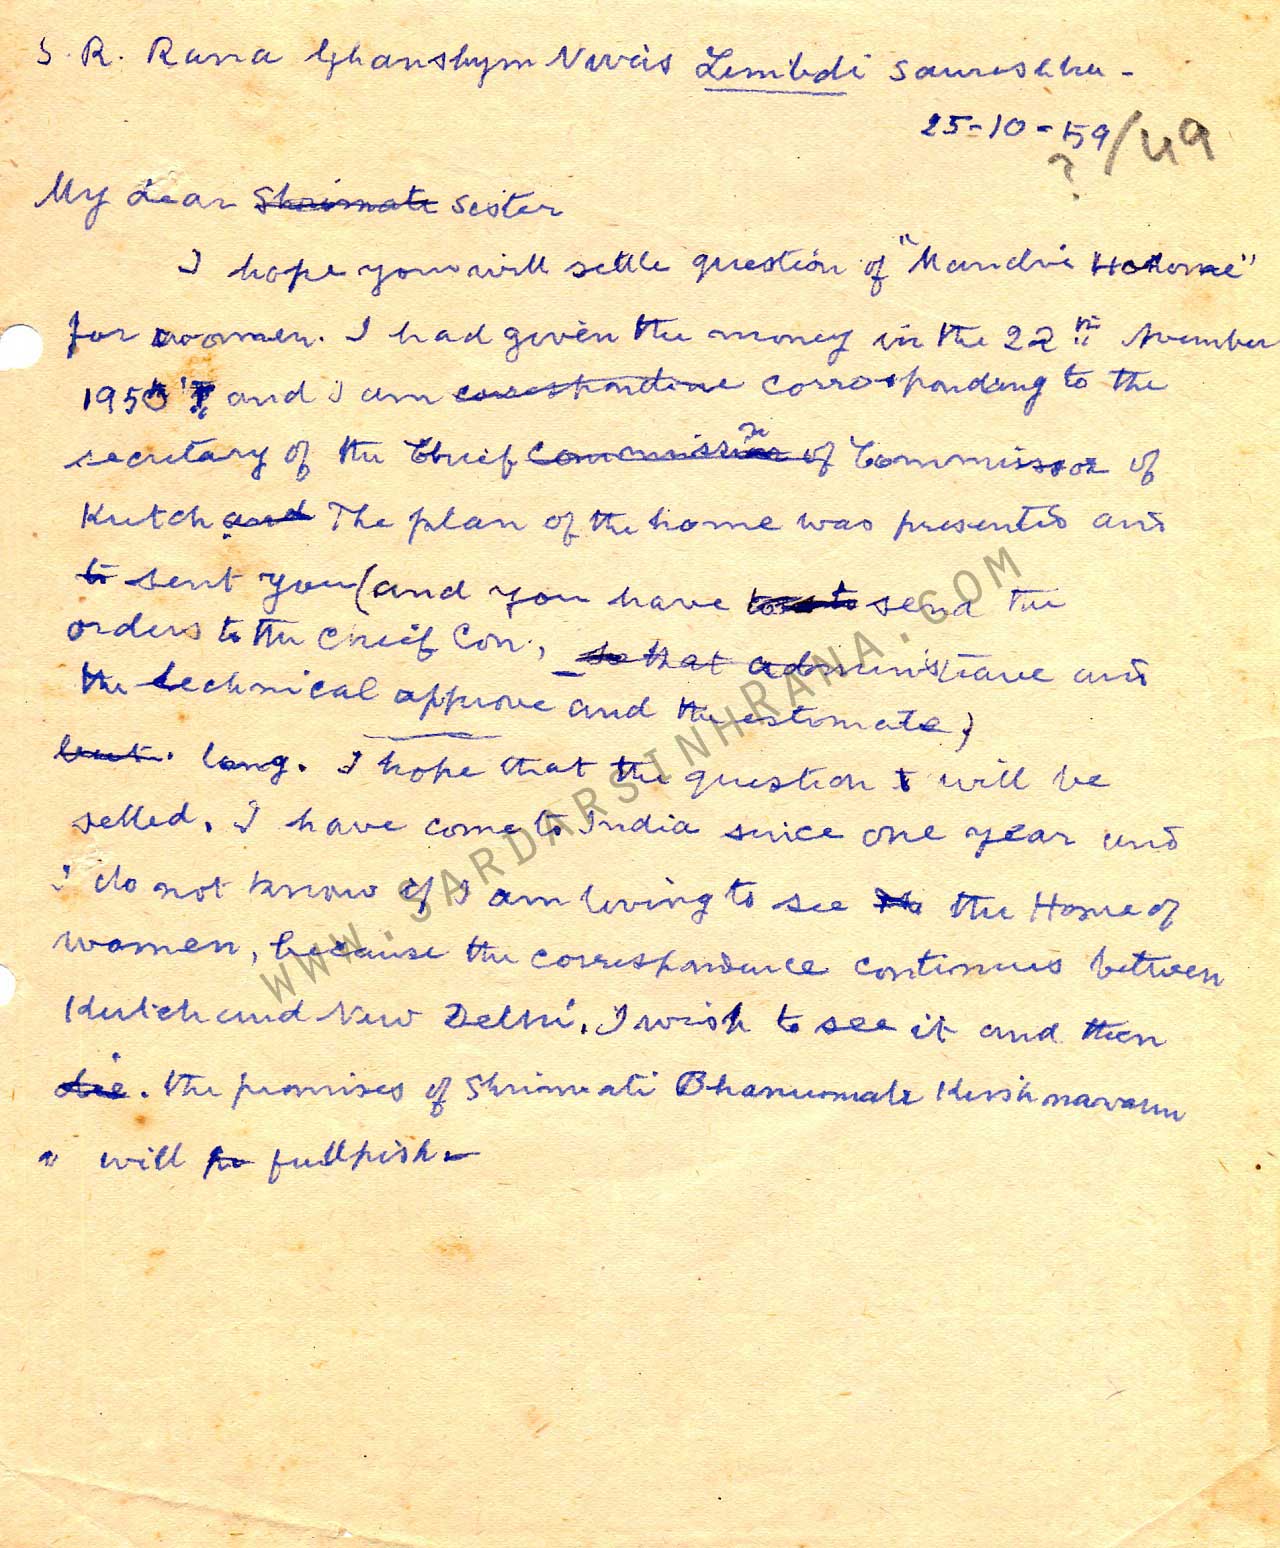 S. R. Rana Ghanshym Nivas Limbdi Saurashtra -
25-10-59 /49
?
My dear Shrimati Sister
I hope you will settle question of "Mandvi Home"
for women. I had given the money in the 22 th November
1950 and I am corespondine corresponding to the
secretary of the Chief Commissior of Commissor of
Kutch and The plan of the home was presented and
to sent you (and you have to send the
orders to the Chief Con, so that administrave and
the technical approve and the estomate)
but. long. I hope that the question will be
selled. I have come to India since one year and
I do not know if I am living to see the Home of
women, because the correspondence continues between
Kutch and New Delhi. I wish to see it and then
die. the promises of Shrimati Bhanumati Krishnavarm
a will fullpish.
WWW.SARDARSINHRANA.COM